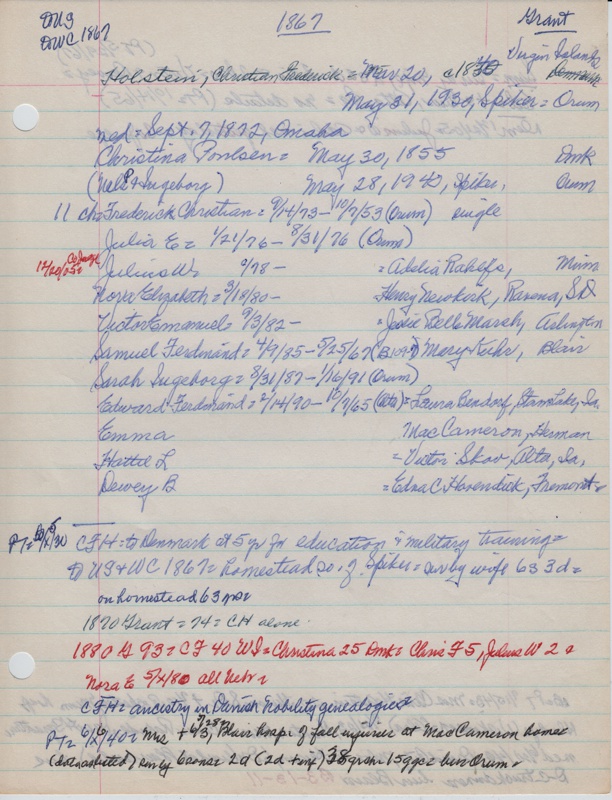 DUS
DWC 1867
1867
Grant
Virgin Islands
Denmark
Holstein, Christian Frederick = Mar 20, c1835
May 31, 1930, Spiker = Orum
md = Sept. 7, 1872, Omaha
Christina Poulsen = May 30, 1855 Dmk
(Nels P + Ingeborg) May 28, 1940, Spiker, Orum
11 ch = Frederick Christian = 9/14/73 - 10/7/53 (Orum) single
Julia E = 1/21/76 - 8/31/76 (Orum)
12/20/05 = Julius W. 2/78 - = Adelia Rahlfs, Minn
Nora Elizabeth = 3/18/80 - Henry Newkirk, Ravena, SD
Victor Emanuel = 9/3/82 - = Josie Belle Marsh, Arlington
Samuel Ferdinand = 4/9/85 - 5/25/67 Mary Kuhr, Blair
Sarah Ingeborg = 8/31/87 - 1/16/91 (Orum)
Edward Ferdinand = 2/14/90 - 10/7/65 (Alta) = Laura Bendorf, Storm Lake, Ia.
Emma Mac Cameron, Herman
Hattie L = Victor Skov, Alta, Ia,
Dewey B = Edna C Hovendick, Fremont =
PT = CFH = to Denmark at 5 yr for education & military training =
to US & WC 1867 = homestead so. of Spiker = sur by wife 6s 3d =
on homestead 63 yrs =
1870 Grant = 74 = CH alone.
1880 G 93 = CF 40 WI = Christina 25 Dmk = Chris F 5, Julius W 2 &
Nora E 5/x/80 all Neb =
CFH = ancestry in Danish Nobility genealogies =
PT = 6/6/40 = Mrs + 5/28, Blair hosp. of fall injuries at Mac Cameron home =
sur by 6sons 2d (2d + inf) 38 grch 15ggc = bur Orum =